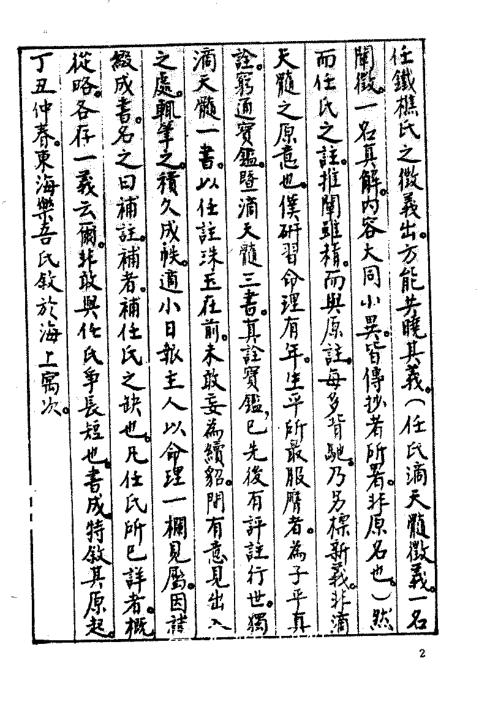 任鐵樵氏之徵義出。方能共曉其義。(任氏滴天髓徵義。一名
闡微。一名真解。內容大同小異。皆傳抄者所署。非原名也。)然
而任氏之註。推闡雖精。而與原註每多背馳。乃另標新義。非滴
天髓之原意也。僕研習命理有年。生平所最服膺者。為子平真
詮。窮通寶鑑。暨滴天髓三書。真詮寶鑑，已先後有評註行世。獨
滴天髓一書。以任註珠玉在前。未敢妄為續貂。間有意見出入
之處。輒筆之。積久成帙。適小日報主人以命理一欄見屬。因諸
綴成書。名之曰補註。補者。補任氏之缺也。凡任氏所已詳者。概
從略。各存一義云爾。非敢與任氏爭長短也。書成特敘其原起。
丁丑仲春。東海樂吾氏敘於海上寓次。
2